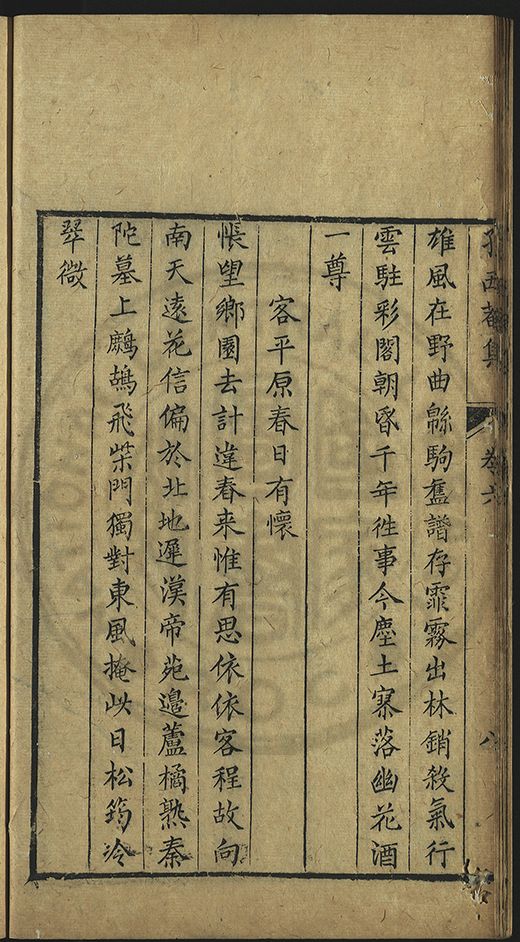 西菴集 卷六 八
雄風在野曲緜駒舊譜存霏霧出林銷殺氣行
雲駐彩閣朝昏千年徃事今塵土寨落幽花酒
一尊
客平原春日有懷
悵望鄉園去計違春来惟有思依依客程故向
南天遠花信偏於北地遲漢帝苑邊蘆橘熟秦
陀墓上鷓鴣飛柴門獨對東風掩此日松筠冷
翠微